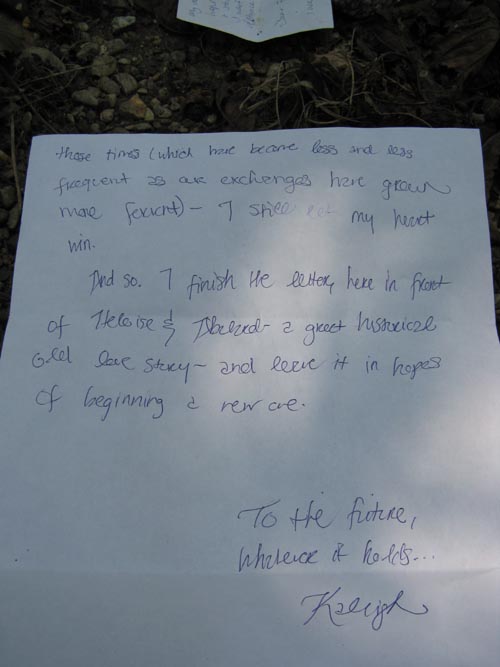 those times (which have become less and less
frequent as our exchanges have grown
more fervent) - I still let my heart
win.
And so. I finish the letter, here in front
of Heloise & Abelard - a great historical
old love story - and leave it in hopes
of beginning a new one.
To the future,
whatever it holds...
Kaleigh